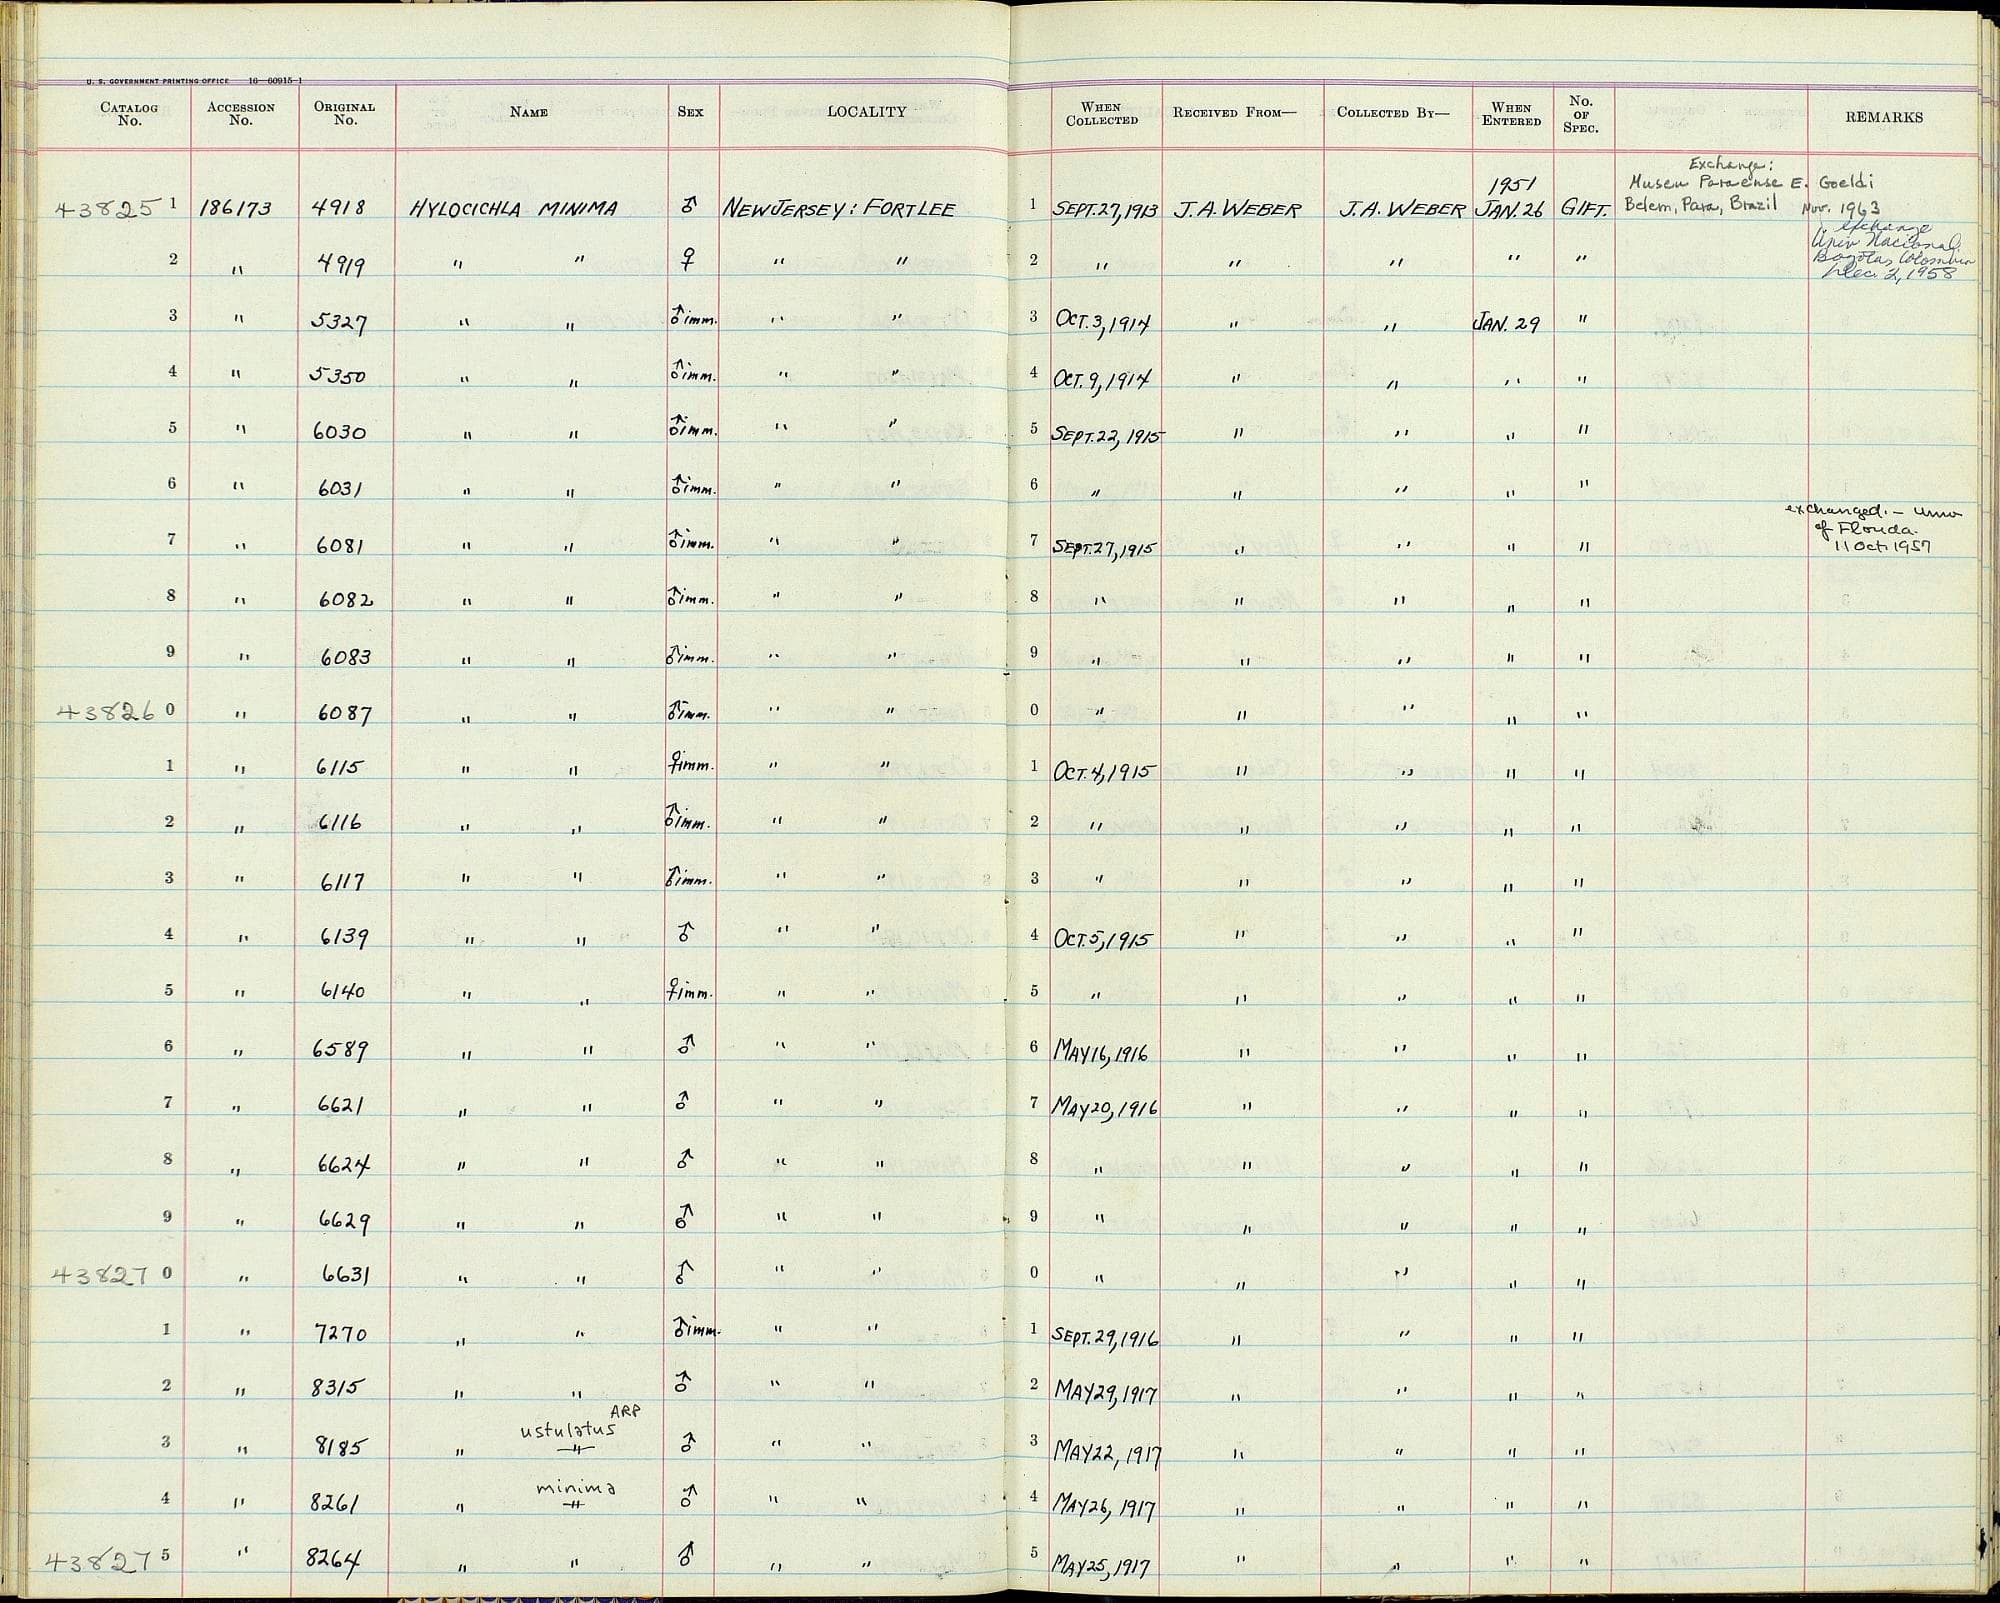 U. S. GOVERNMENT PRINTING OFFICE 16—60915-1
CATALOG No. ACCESSION No. ORIGINAL No. NAME SEX LOCALITY WHEN COLLECTED RECEIVED FROM— COLLECTED BY— WHEN ENTERED No. OF SPEC. REMARKS
Exchange:
Museu Paraense E. Goeldi
Belem, Para, Brazil Nov. 1963
43825 1 186173 4918 HYLOCICHLA MINIMA ♂ NEW JERSEY: FORT LEE 1 SEPT. 27, 1913 J. A. WEBER J. A. WEBER 1951 JAN. 26 GIFT.
exchange
Univ Nacional
Bogotas Colombia
Dec. 2, 1958
2 " 4919 " " ♀ " " 2 " " " " "
3 " 5327 " " ♂ imm. " " 3 OCT. 3, 1914 " " JAN. 29 "
4 " 5350 " " ♂ imm. " " 4 OCT. 9, 1914 " " " "
5 " 6030 " " ♂ imm. " " 5 SEPT. 22, 1915 " " " "
6 " 6031 " " ♂ imm. " " 6 " " " " "
exchanged. — Univ
of Florida.
11 Oct 1957
7 " 6081 " " ♂ imm. " " 7 SEPT. 27, 1915 " " " "
8 " 6082 " " ♂ imm. " " 8 " " " " "
9 " 6083 " " ♂ imm. " " 9 " " " " "
43826 0 " 6087 " " ♂ imm. " " 0 " " " " "
1 " 6115 " " ♀ imm. " " 1 OCT. 4, 1915 " " " "
2 " 6116 " " ♂ imm. " " 2 " " " " "
3 " 6117 " " ♂ imm. " " 3 " " " " "
4 " 6139 " " ♂ " " 4 OCT. 5, 1915 " " " "
5 " 6140 " " ♀ imm. " " 5 " " " " "
6 " 6589 " " ♂ " " 6 MAY 16, 1916 " " " "
7 " 6621 " " ♂ " " 7 MAY 20, 1916 " " " "
8 " 6624 " " ♂ " " 8 " " " " "
9 " 6629 " " ♂ " " 9 " " " " "
43827 0 " 6631 " " ♂ " " 0 " " " " "
1 " 7270 " " ♂ imm. " " 1 SEPT. 29, 1916 " " " "
2 " 8315 " " ♂ " " 2 MAY 29, 1917 " " " "
ARP
ustulatus
3 " 8185 " " ♂ " " 3 MAY 22, 1917 " " " "
minima
4 " 8261 " " ♂ " " 4 MAY 26, 1917 " " " "
43827 5 " 8264 " " ♂ " " 5 MAY 25, 1917 " " " "